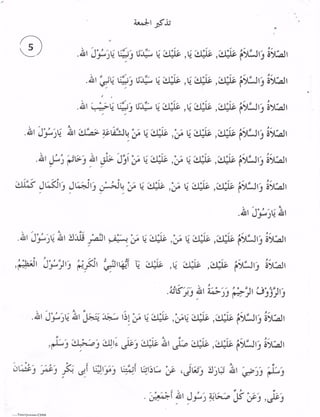 تذكير الجمعة
5
الصَّلَاةُ وَالسَّلَامُ عَلَيْكَ, عَلَيْكَ يَا, عَلَيْكَ يَا سَيِّدَنَا وَنَبِيَّنَا يَارَسُوْلَ الله.
الصَّلَاةُ وَالسَّلَامُ عَلَيْكَ, عَلَيْكَ يَا, عَلَيْكَ يَا سَيِّدَنَا وَنَبِيَّنَا يَانَبِيَّ الله.
الصَّلَاةُ وَالسَّلَامُ عَلَيْكَ, عَلَيْكَ يَا, عَلَيْكَ يَا سَيِّدَنَا وَنَبِيَّنَا يَاحَبِيْبَ الله.
الصَّلَاةُ وَالسَّلَامُ عَلَيْكَ, عَلَيْكَ يَا مَنْ, عَلَيْكَ يَا مَنْ بِالشَّفَاعَةِ خَصَّكَ اللهُ يَارَسُوْلَ الله.
الصَّلَاةُ وَالسَّلَامُ عَلَيْكَ, عَلَيْكَ يَا مَنْ, عَلَيْكَ يَا مَنْ اَوَّلَ خَلْقِ اللهِ وَخَاتَمَ رُسُلِ الله.
الصَّلَاةُ وَالسَّلَامُ عَلَيْكَ, عَلَيْكَ يَا مَنْ, عَلَيْكَ يَا مَنْ بِالْحُسْنِ وَالْجَمَالِ وَالْكَمَالِ كَمَّلَكَ
اللهُ يَارَسُوْلَ الله.
الصَّلَاةُ وَالسَّلَامُ عَلَيْكَ, عَلَيْكَ يَا مَنْ, عَلَيْكَ يَا مَنْ بِسَيْفِ النَّصْرِ قَلَّدَكَ اللهُ يَارَسُوْلَ الله.
الصَّلَاةُ وَالسَّلَامُ عَلَيْكَ, عَلَيْكَ يَا, عَلَيْكَ يَا أَيُّهَاالنَّبِيُّ الْكَرِيْمُ وَالرَّسُوْلُ الْعَظِيْمُ,
وَالرَّؤُوْفُ الرَّحِيْمُ وَرَحْمَةُ اللهِ وَبَرَكَاتُهُ.
الصَّلَاةُ وَالسَّلَامُ عَلَيْكَ, عَلَيْكَ يَامَنْ, عَلَيْكَ يَا مَنْ إِذَا سَجَدَ يَتَجَلَّى اللهُ يَارَسُوْلَ الله.
الصَّلَاةُ وَالسَّلَامُ عَلَيْكَ, عَلَيْكَ صَلَّى اللهُ عَلَيْكَ وَعَلَى ءَالِكَ وَصَحْبِكَ وَسَلَّمَ,
وَسَلَّمَ وَرَضِيَ اللهُ تَبَارَكَ وَتَعَالَى, عَنْ سَادَاتِنَا أَئِمَّتِنَا وَمَوَالِيْنَا أَبِي بَكْرٍ وَعُمَرَ وَعُثْمَانَ
وَعَلِيّ, وَعَنْ كُلِّ صَحَابَةِ رَسُوْلِ اللهِ أَجْمَعِيْنَ.